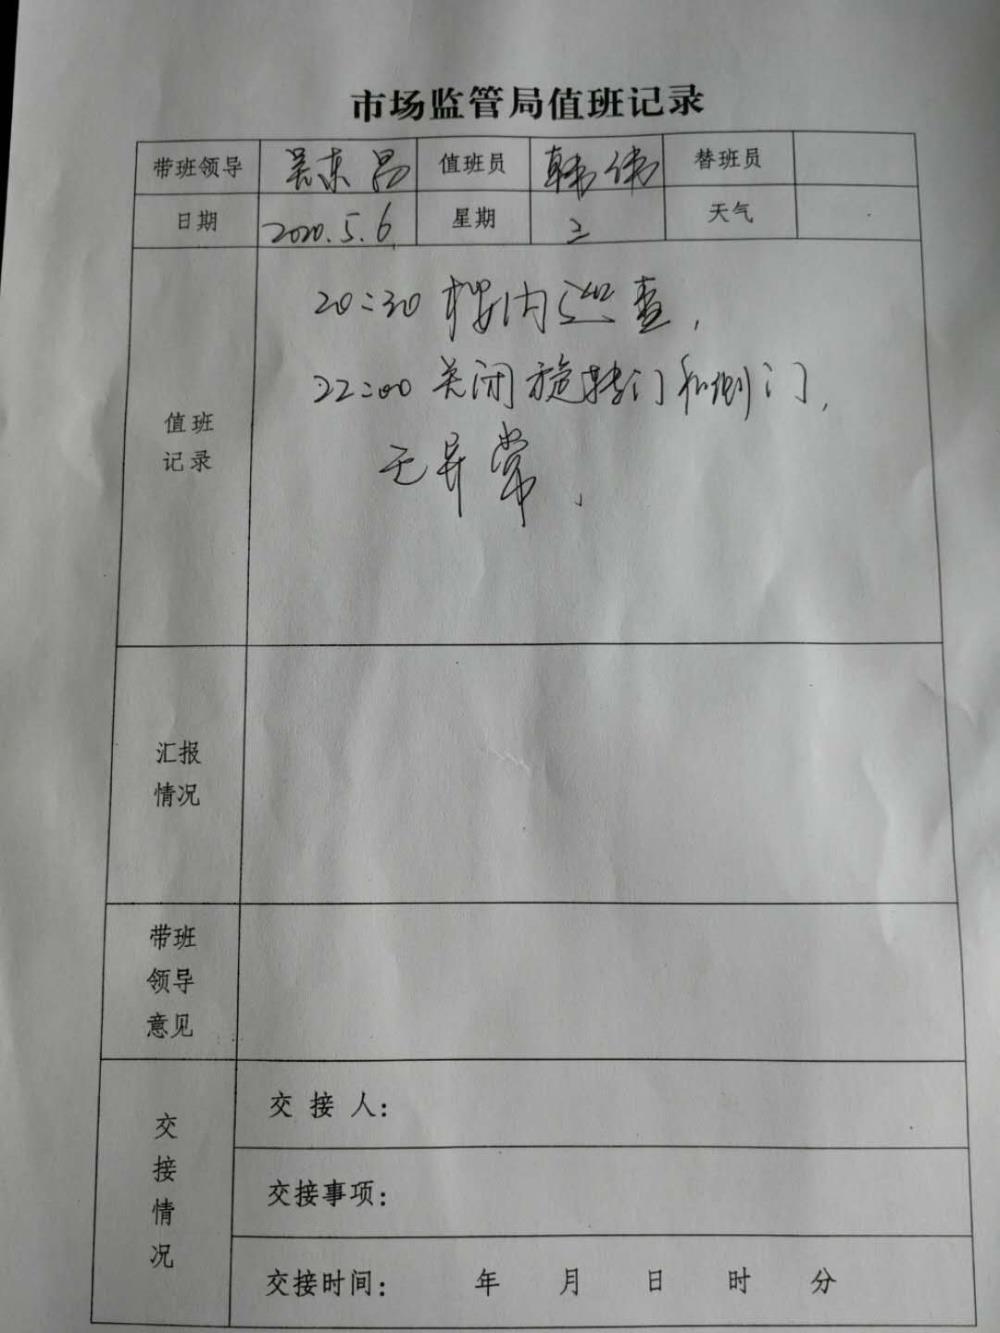 市场监管局值班记录
带班领导 吴东昌 值班员 韩伟 替班员
日期 2020.5.6 星期 三 天气
值班
记录
20:30 楼内巡查,
22:00 关闭旋转门和侧门,
无异常、
汇报
情况
带班
领导
意见
交
接
情
况
交 接 人:
交接事项:
交接时间: 年 月 日 时 分